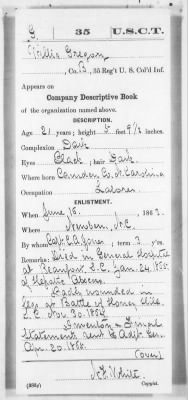 G. 35 U.S.C.T.
Willis Gregory
, Co. B, 35 Reg't U. S. Col'd Inf.
Appears on
Company Descriptive Book
of the organization named above.
DESCRIPTION.
Age 21 years; height 5 feet 9½ inches.
Complexion Dark
Eyes Black; hair Dark.
Where born Camden Co. N. Carolina
Occupation Laborer
ENLISTMENT.
When June 16, 1863.
Where Newbern, N.C.
By whom Capt. C.A. Jones; term 3 years.
Remarks: Died in General Hospital
at Beaufort, S.C. Jan. 24, 1865
of Hepatic Abcess.
Badly wounded in
leg at Battle of Honey Hill
S.C. Nov. 30, 1864
Inventory & Final
Statements sent to Adjt. Gen.
Apr. 20, 1865.
(over)
Copyist.